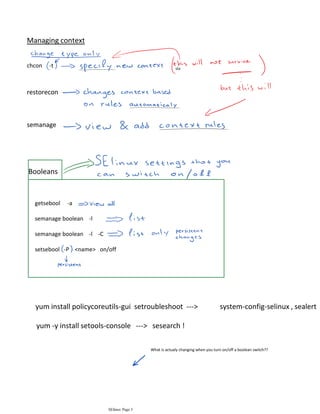 Managing context
change type only
chcon (-t) → specify new context (this will not survive
but this will
restorecon → changes context based
on rules automaticaly
semanage → view & add context rules
Booleans → SElinux settings that you
can switch on/off
getsebool -a ⇒ view all
semanage boolean -l ⇒ list
semanage boolean -l -C ⇒ list only persistent
changes
setsebool (-P) <name> on/off
persistent
yum install policycoreutils-gui setroubleshoot ---> system-config-selinux , sealert
yum -y install setools-console ---> sesearch !
What is actualy changing when you turn on/off a boolean switch??
SElinux Page 3